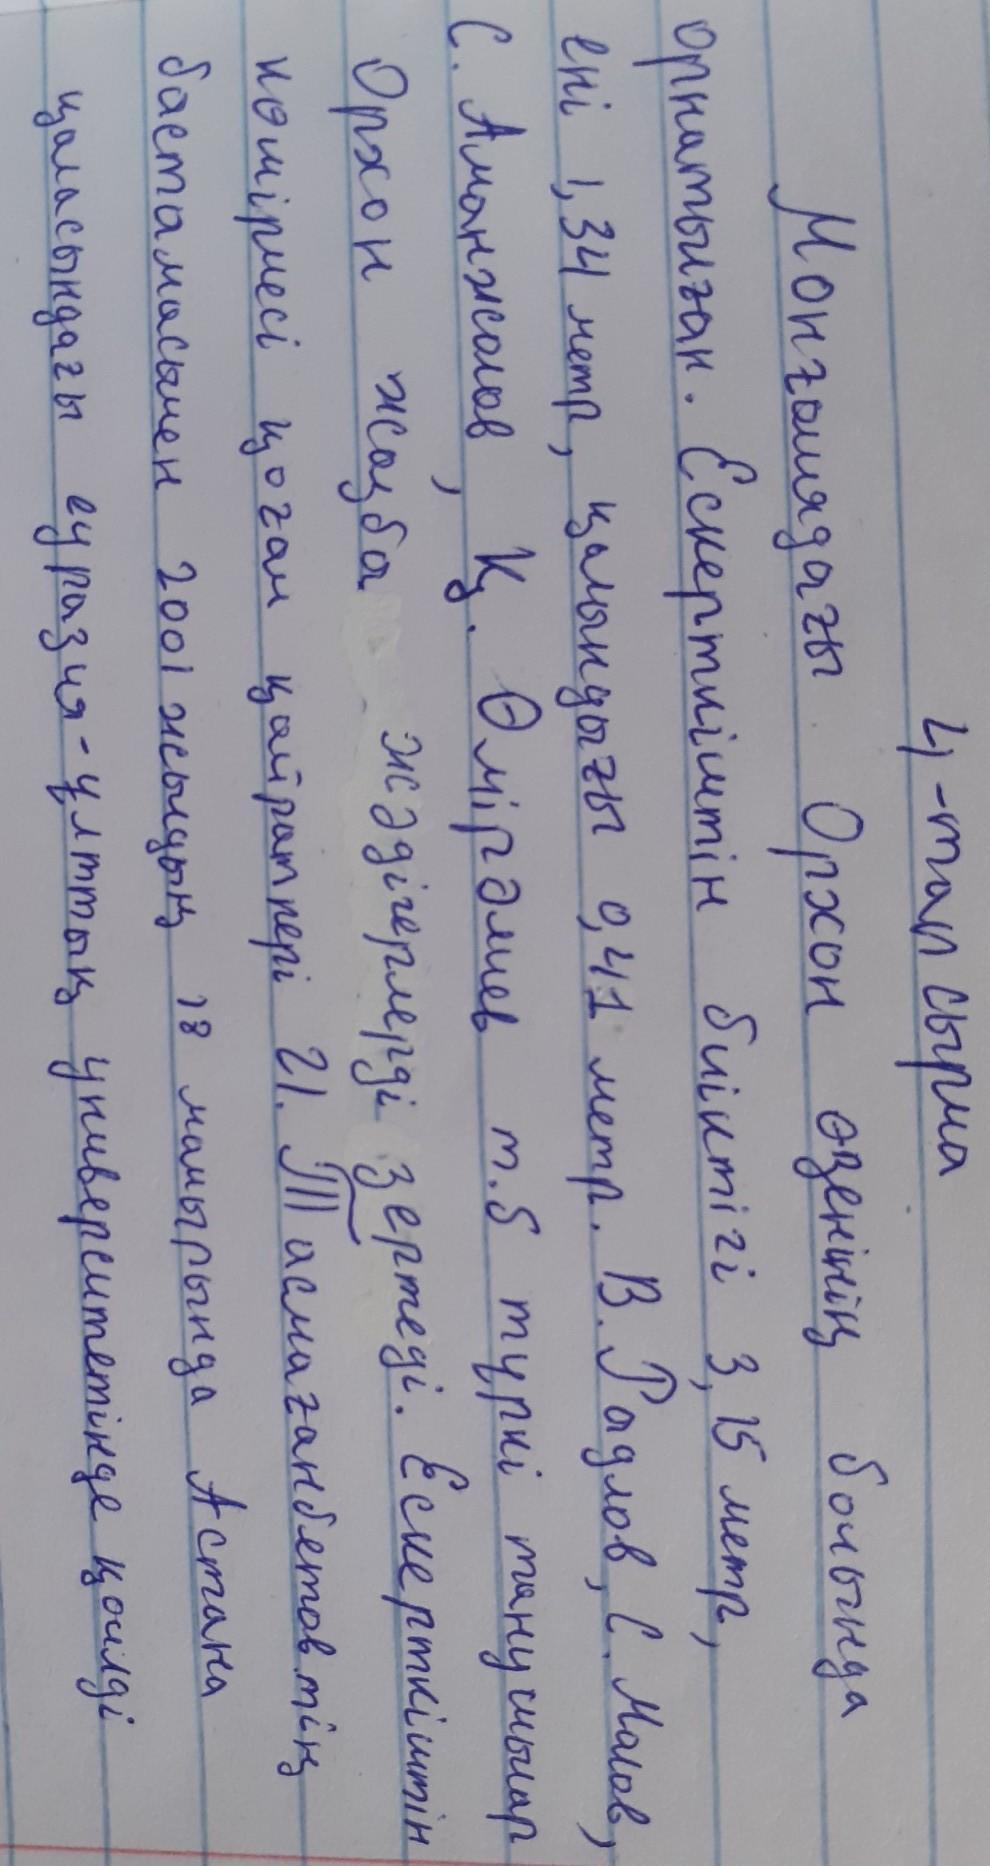 4-тапсырма
Монғолиядағы Орхон өзенінің бойында
орнатылған. Ескерткіштін биіктігі 3,15 метр,
ені 1,34 метр, қалыңдығы 0,41 метр. В. Радлов, С. Малов,
С. Аманжолов, Қ. Өмірәлиев т.б түркі танушылар
Орхон жазба жәдігерлерді зертеді. Ескерткіштін
көшірмесі қоғам қайраткері И. Тасмағанбетовтің
бастамасымен 2001 жылдың 18 мамырында Астана
қаласындағы еуразия-ұлттық университетінде қойлді